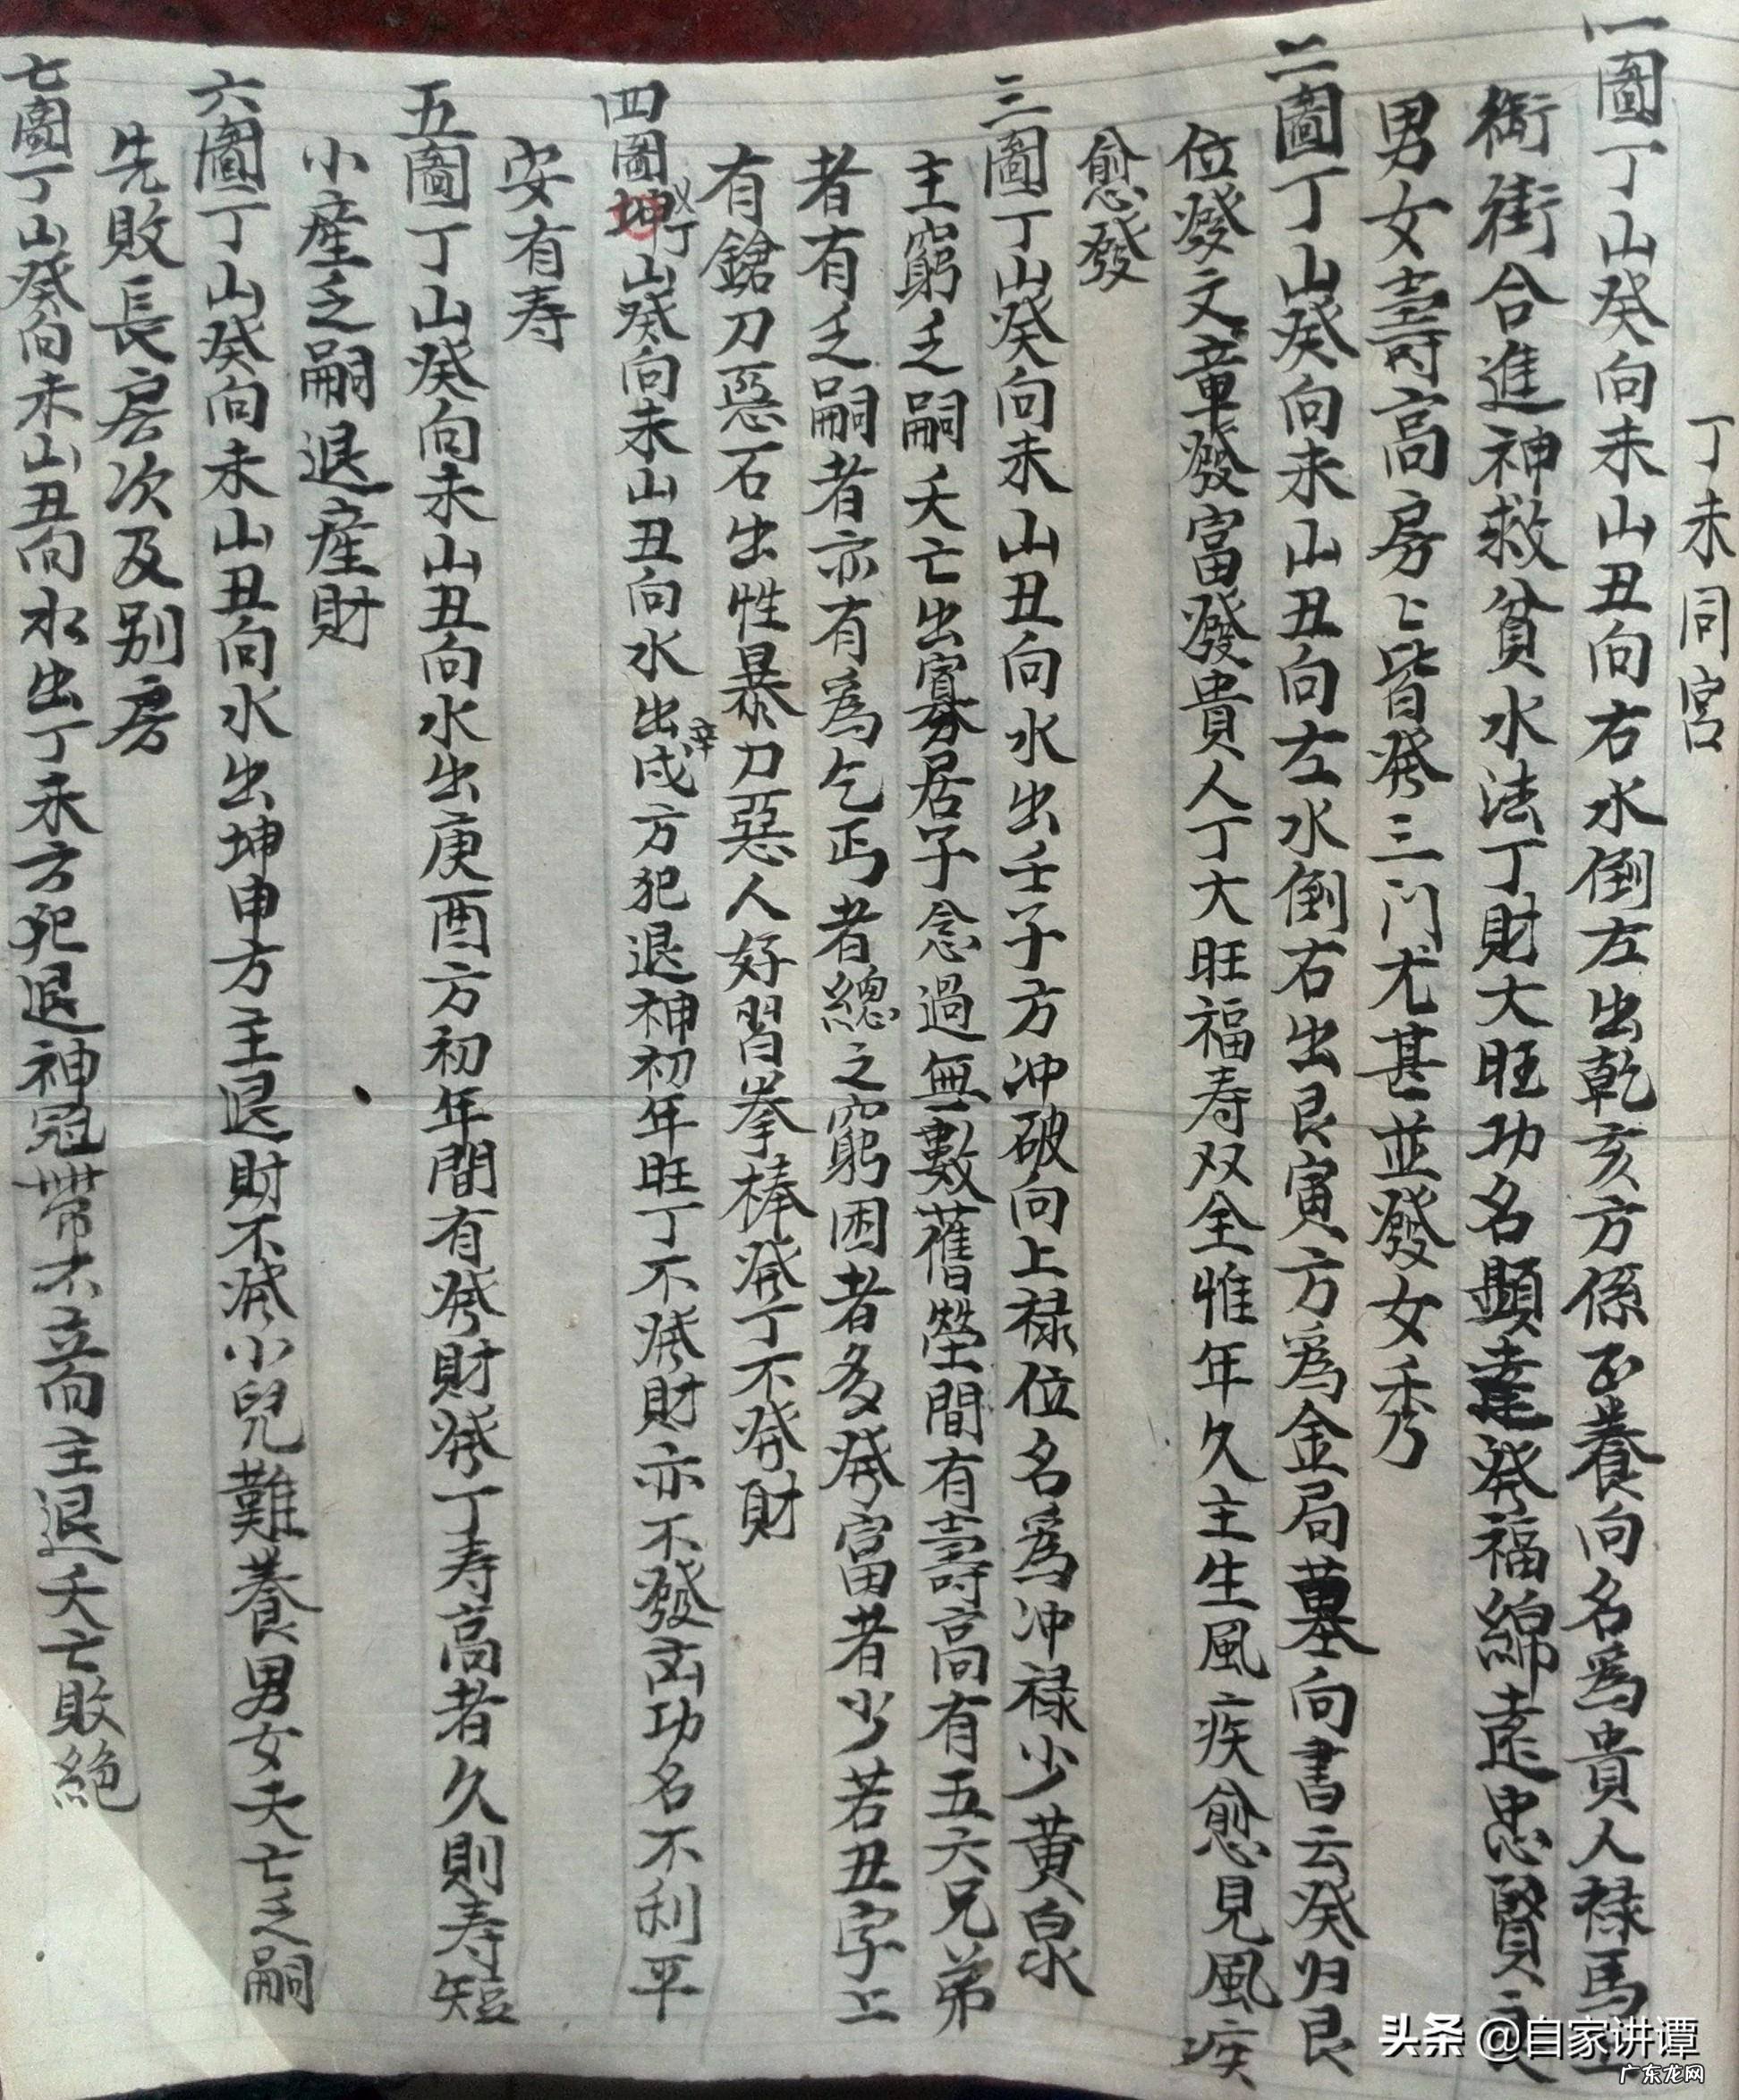 丁未同宮
一圖丁山癸向未山丑向右水倒左出乾亥方係正養向名為貴人祿馬
御街合進神救貧水法丁財大旺功名顯達發福綿遠忠賢
男女壽高房〻皆發三门尤甚並發女秀
二圖丁山癸向未山丑向左水倒右出艮寅方為金局墓向書云癸归艮
位發文章發富發貴人丁大旺福寿双全惟年久主生風疾愈見風疾
愈發
三圖丁山癸向未山丑向水出壬子方冲破向上祿位名為冲祿少黄泉
主窮乏嗣夭亡出寡居子念過無數舊塋間有壽高有五六兄弟
者有乏嗣者亦有為乞丐者總之窮困者多發富者少若丑字上
有鎗刀惡石出性暴刀惡人好習拳棒發丁不發財
四圖丁山癸向未山丑向水出辛戌方犯退神初年旺丁不發財亦不發凶功名不利平
安有寿
五圖丁山癸向未山丑向水出庚酉方初年間有發財發丁寿高者久則寿短
小産乏嗣退産財
六圖丁山癸向未山丑向水出坤申方主退財不發小兒難養男女夭亡乏嗣
先敗長房次及别房
七圖丁山癸向未山丑向水出丁未方犯退神冠帶不立向主退夭亡敗絕
头条 @自家讲谭
广东龙网